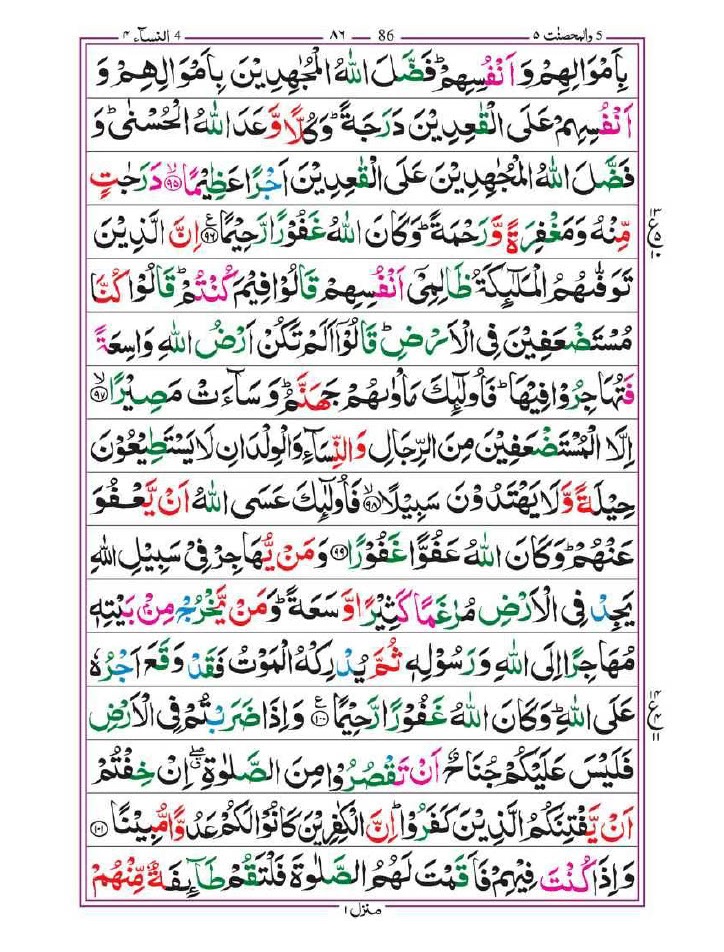 5 والمحصنٰت ۵ 86 ۸۶ 4 النسآء ۴
بِاَمْوَالِهِمْ وَ اَنْفُسِهِمْ ؕ فَضَّلَ اللّٰهُ الْمُجٰهِدِيْنَ بِاَمْوَالِهِمْ وَ
اَنْفُسِهِمْ عَلَى الْقٰعِدِيْنَ دَرَجَةً ؕ وَكُلًّا وَّعَدَ اللّٰهُ الْحُسْنٰى ؕ وَ
فَضَّلَ اللّٰهُ الْمُجٰهِدِيْنَ عَلَى الْقٰعِدِيْنَ اَجْرًا عَظِيْمًا ۙ‏﴿۹۵﴾ دَرَجٰتٍ
مِّنْهُ وَمَغْفِرَةً وَّرَحْمَةً ؕ وَكَانَ اللّٰهُ غَفُوْرًا رَّحِيْمًا ﴿۹۶﴾ ع اِنَّ الَّذِيْنَ
۱۳ ع ۵ ۱۰
تَوَفّٰٮهُمُ الْمَلٰٓئِكَةُ ظَالِمِىْۤ اَنْفُسِهِمْ قَالُوْا فِيْمَ كُنْتُمْ ؕ قَالُوْا كُنَّا
مُسْتَضْعَفِيْنَ فِى الْاَرْضِ ؕ قَالُوْۤا اَلَمْ تَكُنْ اَرْضُ اللّٰهِ وَاسِعَةً
فَتُهَاجِرُوْا فِيْهَا ؕ فَاُولٰٓئِكَ مَاْوٰٮهُمْ جَهَنَّمُ ؕ وَسَآءَتْ مَصِيْرًا ۙ﴿۹۷﴾
اِلَّا الْمُسْتَضْعَفِيْنَ مِنَ الرِّجَالِ وَالنِّسَآءِ وَالْوِلْدَانِ لَا يَسْتَطِيْعُوْنَ
حِيْلَةً وَّلَا يَهْتَدُوْنَ سَبِيْلًا ۙ﴿۹۸﴾ فَاُولٰٓئِكَ عَسَى اللّٰهُ اَنْ يَّعْفُوَ
عَنْهُمْ ؕ وَكَانَ اللّٰهُ عَفُوًّا غَفُوْرًا ﴿۹۹﴾ وَمَنْ يُّهَاجِرْ فِىْ سَبِيْلِ اللّٰهِ
يَجِدْ فِى الْاَرْضِ مُرٰغَمًا كَثِيْرًا وَّسَعَةً ؕ وَمَنْ يَّخْرُجْ مِنْۢ بَيْتِهٖ
مُهَاجِرًا اِلَى اللّٰهِ وَرَسُوْلِهٖ ثُمَّ يُدْرِكْهُ الْمَوْتُ فَقَدْ وَقَعَ اَجْرُهٗ
عَلَى اللّٰهِ ؕ وَكَانَ اللّٰهُ غَفُوْرًا رَّحِيْمًا ﴿۱۰۰﴾ ع وَاِذَا ضَرَبْتُمْ فِى الْاَرْضِ
۱۴ ع ۴ ۱۱
فَلَيْسَ عَلَيْكُمْ جُنَاحٌ اَنْ تَقْصُرُوْا مِنَ الصَّلٰوةِ ۖ اِنْ خِفْتُمْ
اَنْ يَّفْتِنَكُمُ الَّذِيْنَ كَفَرُوْا ؕ اِنَّ الْكٰفِرِيْنَ كَانُوْا لَكُمْ عَدُوًّا مُّبِيْنًا ﴿۱۰۱﴾
وَاِذَا كُنْتَ فِيْهِمْ فَاَقَمْتَ لَهُمُ الصَّلٰوةَ فَلْتَقُمْ طَآئِفَةٌ مِّنْهُمْ
منزل ۱